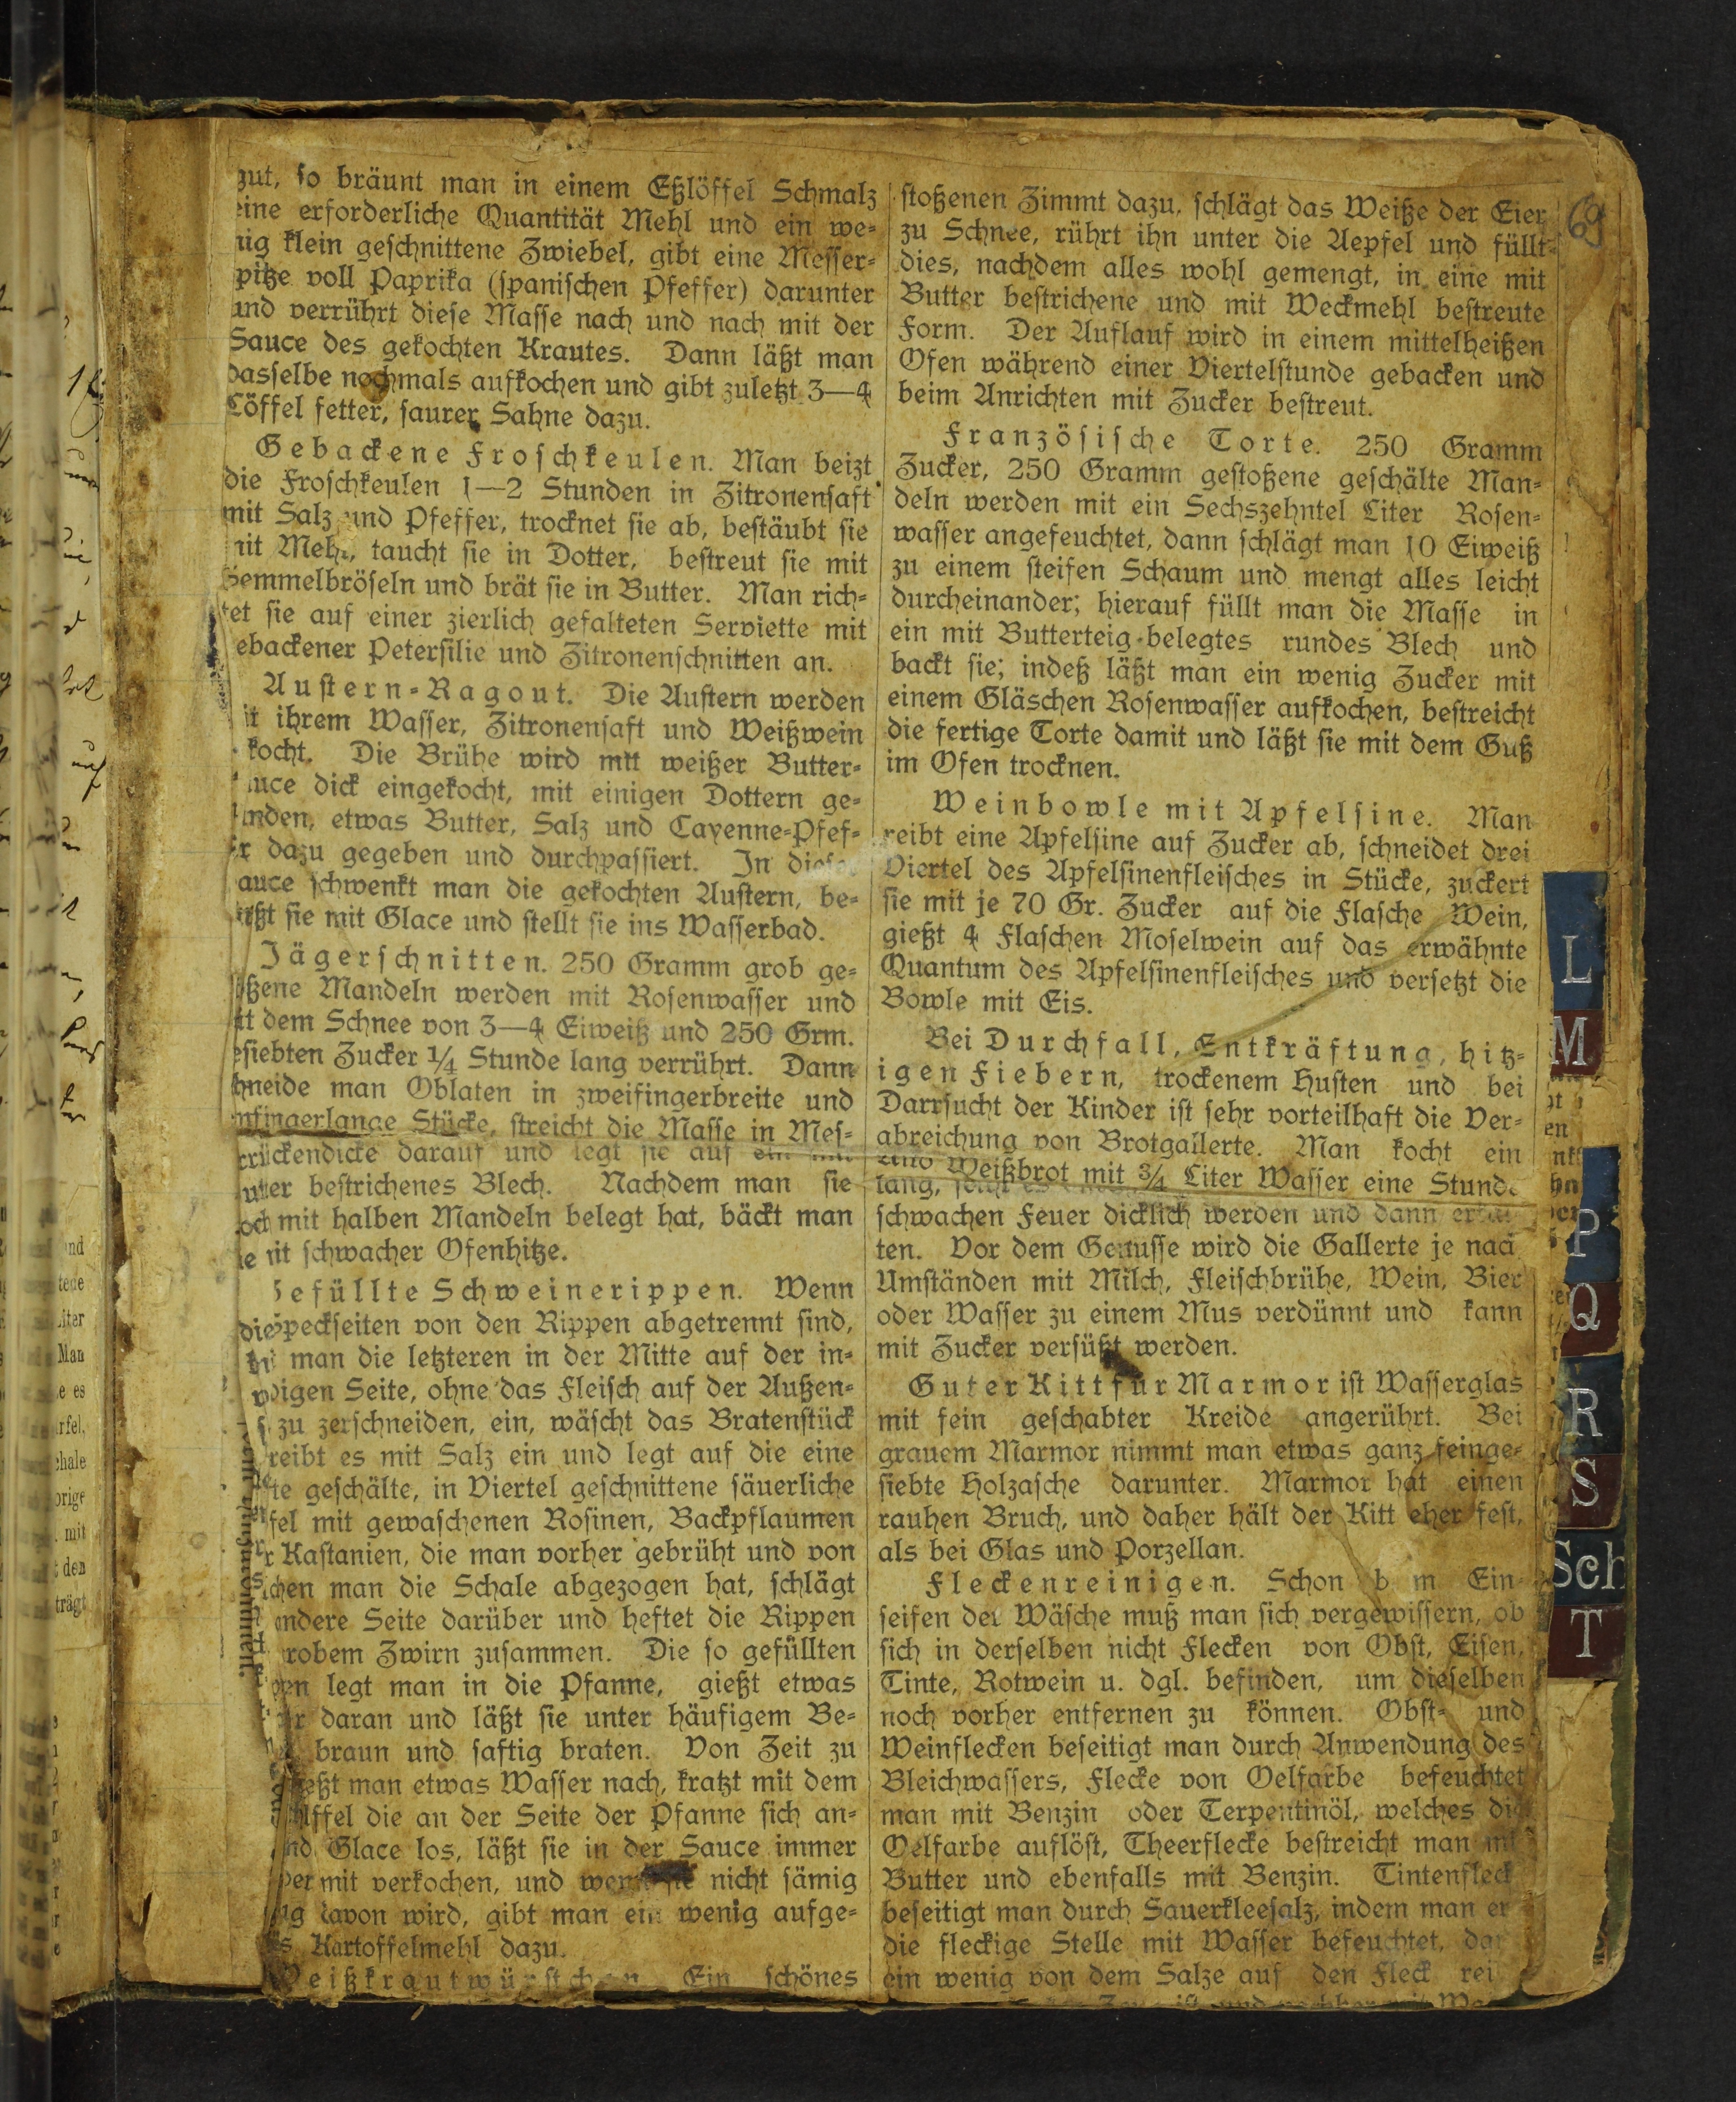 gut, ſo bräunt man in einem Eßlöffel Schmalz
eine erforderliche Quantität Mehl und ein we-
nig klein geſchnittene Zwiebel, gibt eine Meſſer-
pitze voll Paprika (ſpaniſchen Pfeffer) darunter
und verrührt dieſe Maſſe nach und nach mit der
Sauce des gekochten Krautes. Dann läßt man
dasſelbe nochmals aufkochen und gibt zuletzt 3—4
Löffel fetter, ſaurer Sahne dazu.
Gebackene Froſchkeulen. Man beizt
die Froſchkeulen 1—2 Stunden in Zitronenſaft
mit Salz und Pfeffer, trocknet ſie ab, beſtäubt ſie
mit Mehl, taucht ſie in Dotter, beſtreut ſie mit
Semmelbröſeln und brät ſie in Butter. Man rich-
tet ſie auf einer zierlich gefalteten Serviette mit
ebackener Peterſilie und Zitronenſchnitten an.
Auſtern-Ragout. Die Auſtern werden
it ihrem Waſſer, Zitronenſaft und Weißwein
kocht. Die Brühe wird mit weißer Butter-
auce dick eingekocht, mit einigen Dottern ge-
unden, etwas Butter, Salz und Cayenne-Pfef-
er dazu gegeben und durchpaſſiert. In dieſer
auce ſchwenkt man die gekochten Auſtern, be-
ießt ſie mit Glace und ſtellt ſie ins Waſſerbad.
Jägerſchnitten. 250 Gramm grob ge-
oßene Mandeln werden mit Roſenwaſſer und
it dem Schnee von 3—4 Eiweiß und 250 Grm.
eſiebten Zucker 1/4 Stunde lang verrührt. Dann
ſchneide man Oblaten in zweifingerbreite und
nfingerlange Stücke, ſtreicht die Maſſe in Meſ-
rrückendicke darauf und legt ſie auf ein mit
utter beſtrichenes Blech. Nachdem man ſie
och mit halben Mandeln belegt hat, bäckt man
ie mit ſchwacher Ofenhitze.
Gefüllte Schweinerippen. Wenn
die Speckſeiten von den Rippen abgetrennt ſind,
man die letzteren in der Mitte auf der in-
digen Seite, ohne das Fleiſch auf der Außen-
zu zerſchneiden, ein, wäſcht das Bratenſtück
reibt es mit Salz ein und legt auf die eine
te geſchälte, in Viertel geſchnittene ſäuerliche
fel mit gewaſchenen Roſinen, Backpflaumen
r Kaſtanien, die man vorher gebrüht und von
chen man die Schale abgezogen hat, ſchlägt
andere Seite darüber und heftet die Rippen
robem Zwirn zuſammen. Die ſo gefüllten
pen legt man in die Pfanne, gießt etwas
er daran und läßt ſie unter häufigem Be-
braun und ſaftig braten. Von Zeit zu
ießt man etwas Waſſer nach, kratzt mit dem
löffel die an der Seite der Pfanne ſich an-
nd Glace los, läßt ſie in der Sauce immer
er mit verkochen, und wenn ſie nicht ſämig
ug davon wird, gibt man ein wenig aufge-
es Kartoffelmehl dazu.
Weißkrautwürſtchen. Ein ſchönes
ſtoßenen Zimmt dazu, ſchlägt das Weiße der Eier
zu Schnee, rührt ihn unter die Aepfel und füllt
dies, nachdem alles wohl gemengt, in eine mit
Butter beſtrichene und mit Weckmehl beſtreute
Form. Der Auflauf wird in einem mittelheißen
Ofen während einer Viertelſtunde gebacken und
beim Anrichten mit Zucker beſtreut.
Franzöſiſche Torte. 250 Gramm
Zucker, 250 Gramm geſtoßene geſchälte Man-
deln werden mit ein Sechszehntel Liter Roſen-
waſſer angefeuchtet, dann ſchlägt man 10 Eiweiß
zu einem ſteifen Schaum und mengt alles leicht
durcheinander; hierauf füllt man die Maſſe in
ein mit Butterteig belegtes rundes Blech und
backt ſie; indeß läßt man ein wenig Zucker mit
einem Gläschen Roſenwaſſer aufkochen, beſtreicht
die fertige Torte damit und läßt ſie mit dem Guß
im Ofen trocknen.
Weinbowle mit Apfelſine. Man
reibt eine Apfelſine auf Zucker ab, ſchneidet drei
Viertel des Apfelſinenfleiſches in Stücke, zuckert
ſie mit je 70 Gr. Zucker auf die Flaſche Wein,
gießt 4 Flaſchen Moſelwein auf das erwähnte
Quantum des Apfelſinenfleiſches und verſetzt die
Bowle mit Eis.
Bei Durchfall, Entkräftung, hitz-
igen Fiebern, trockenem Huſten und bei
Darrſucht der Kinder iſt ſehr vorteilhaft die Ver-
abreichung von Brotgallerte. Man kocht ein
Weißbrot mit 3/4 Liter Waſſer eine Stunde
lang,
ſchwachen Feuer dicklich werden und dann erkal
ten. Vor dem Genuſſe wird die Gallerte je nach
Umſtänden mit Milch, Fleiſchbrühe, Wein, Bier
oder Waſſer zu einem Mus verdünnt und kann
mit Zucker verſüßt werden.
Guter Kitt für Marmor iſt Waſſerglas
mit fein geſchabter Kreide angerührt. Bei
grauem Marmor nimmt man etwas ganz feinge-
ſiebte Holzaſche darunter. Marmor hat einen
rauhen Bruch, und daher hält der Kitt eher feſt,
als bei Glas und Porzellan.
Fleckenreinigen. Schon b m Ein-
ſeifen der Wäſche muß man ſich vergewiſſern, ob
ſich in derſelben nicht Flecken von Obſt, Eiſen,
Tinte, Rotwein u. dgl. befinden, um dieſelben
noch vorher entfernen zu können. Obſt- und
Weinflecken beſeitigt man durch Anwendung des
Bleichwaſſers, Flecke von Oelfarbe befeuchtet
man mit Benzin oder Terpentinöl, welches die
Oelfarbe auflöſt, Theerflecke beſtreicht man mit
Butter und ebenfalls mit Benzin. Tintenfleck
beſeitigt man durch Sauerkleeſalz, indem man er
die fleckige Stelle mit Waſſer befeuchtet, dar
ein wenig von dem Salze auf den Fleck rei
69
L
M
P
Q
R
S
Sch
T